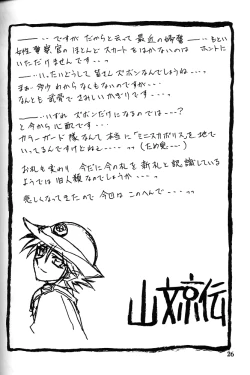 ――‥‥ですが だからと云って 最近の婦警――もとい
女性警察官のほとんどスカートをはかないのは ホントに
いただけません ‥‥ですー
――‥‥いったいどうして皆さんズボンなんでしょうね‥‥。
まぁ、今々わからなくもないですが‥‥
なんとも 武骨で さみしいかぎりです‥‥。
――‥‥いずれ ズボンだけになるのでは‥‥?
と今から心配です‥‥
カラーガード隊なんて本当に「ミニスカポリス」を地で
いってるんですけどねぇ‥‥(ため息〜)
お札も変わり 今だに今の札を新札と認識している
ようでは 旧人類なのでしょうか‥‥。
悲しくなってきたので 今回はこのへんで‥‥
山文京伝
26